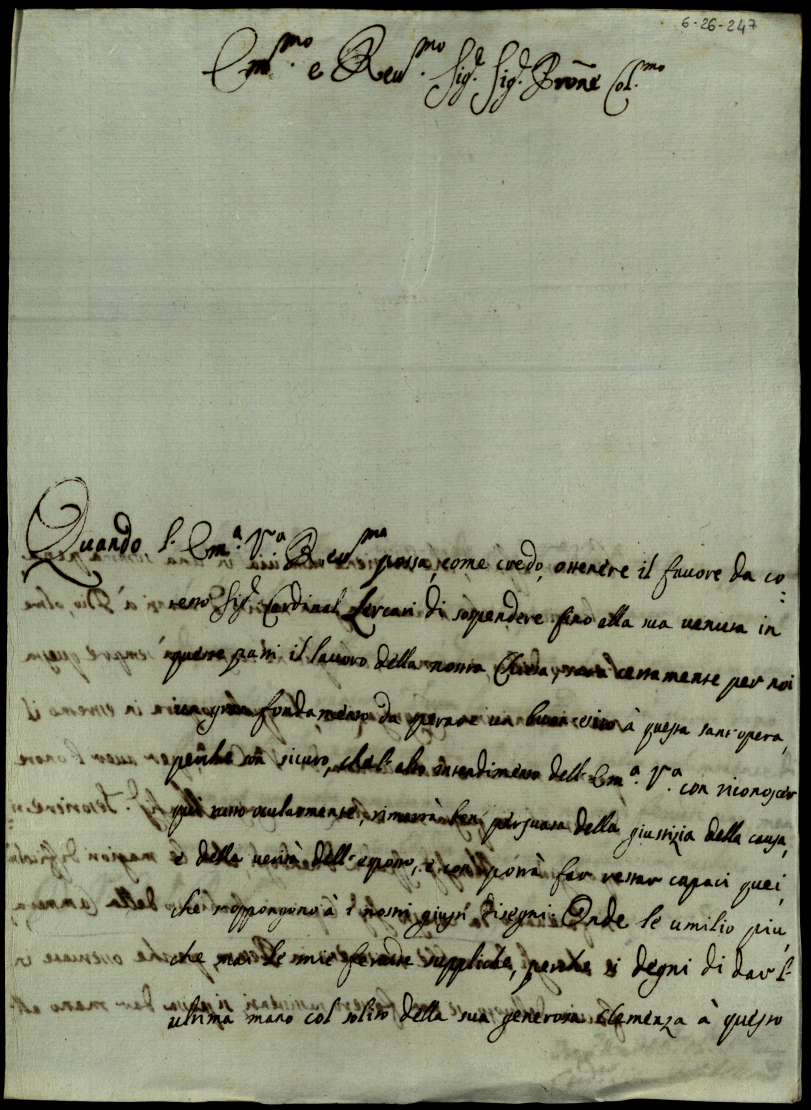 6-26-247
Em.mo e Reu.mo Sig.r Sig.r Prone Col.mo
Quando l'Em.a V.a Reu.ma possa, come credo, ottenere il favore da co:
testo Sig.r Cardinal Lercari di sospendere fino alla sua venuta in
queste parti il lavoro della nostra Chiesa, sarà certamente per noi
un gran fondamento da sperare un buon esito à questa sant'opera,
perche son sicuro, che l'alto intendimento dell'Em.a V.a con riconoscer
qui tutto ocularmente, rimarrà ben persuasa della giustizia della causa,
e della verità dell'esposto, e così potrà far restar capaci quei,
che s'oppongono à i nostri giusti disegni. Onde le umilio più
che mai le mie fervide suppliche, perche si degni di dar l'
ultima mano col solito della sua generosa clemenza à questo